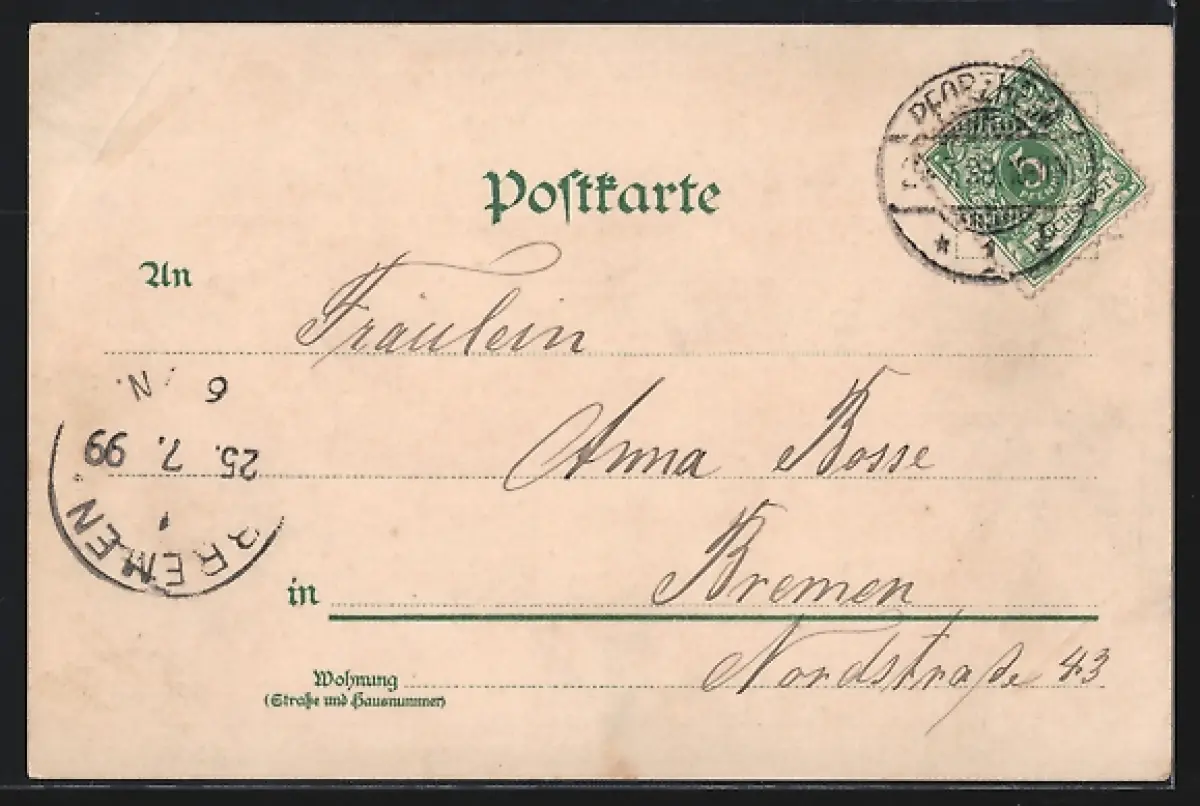 PFORZHEIM
5
REICHSPOST
Postkarte
An Fräulein
Anna Bosse
in Bremen
Wohnung Nordstraße 43
(Straße und Hausnummer)
BREMEN
25. 7. 99
6 N.